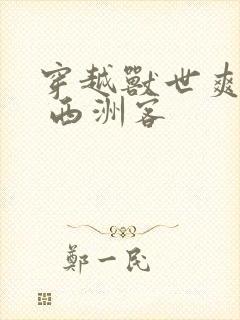 穿越獸世爽
西洲客
鄭一民